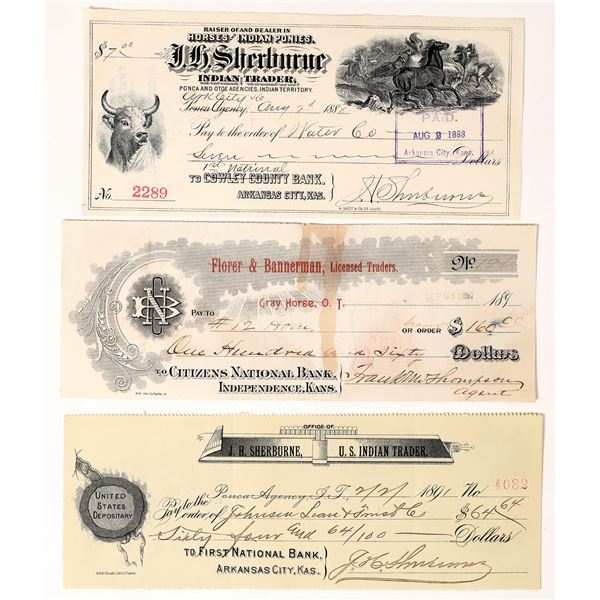 RAISER OF AND DEALER IN
HORSES AND INDIAN PONIES.
$7.00
J.H. Sherburne
INDIAN TRADER,
PONCA AND OTOE AGENCIES, INDIAN TERRITORY.
Ark City Ks
Ponca Agency, Aug 2d 1888
PAID.
AUG 2 1888
Arkansas City, Kans.
Pay to the order of Water Co
Seven Dollars
1st National
TO COWLEY COUNTY BANK,
ARKANSAS CITY, KAS.
J H Sherburne
No. 2289
Florer & Bannerman, Licensed Traders.
No 191
Gray Horse, O. T.
SEP 1897 189
PAY TO #12 OR ORDER $160.00
One Hundred and Sixty Dollars
TO CITIZENS NATIONAL BANK,
INDEPENDENCE, KANS.
Frank M Thompson
agent
OFFICE OF
J. H. SHERBURNE, U. S. INDIAN TRADER.
Ponca Agency, I.T., 2/21 1891 No 4082
UNITED STATES DEPOSITARY
Pay to the order of Johnson Loan & Trust Co $64 64
Sixty four and 64/100 Dollars
TO FIRST NATIONAL BANK,
ARKANSAS CITY, KAS.
J. H. Sherburne